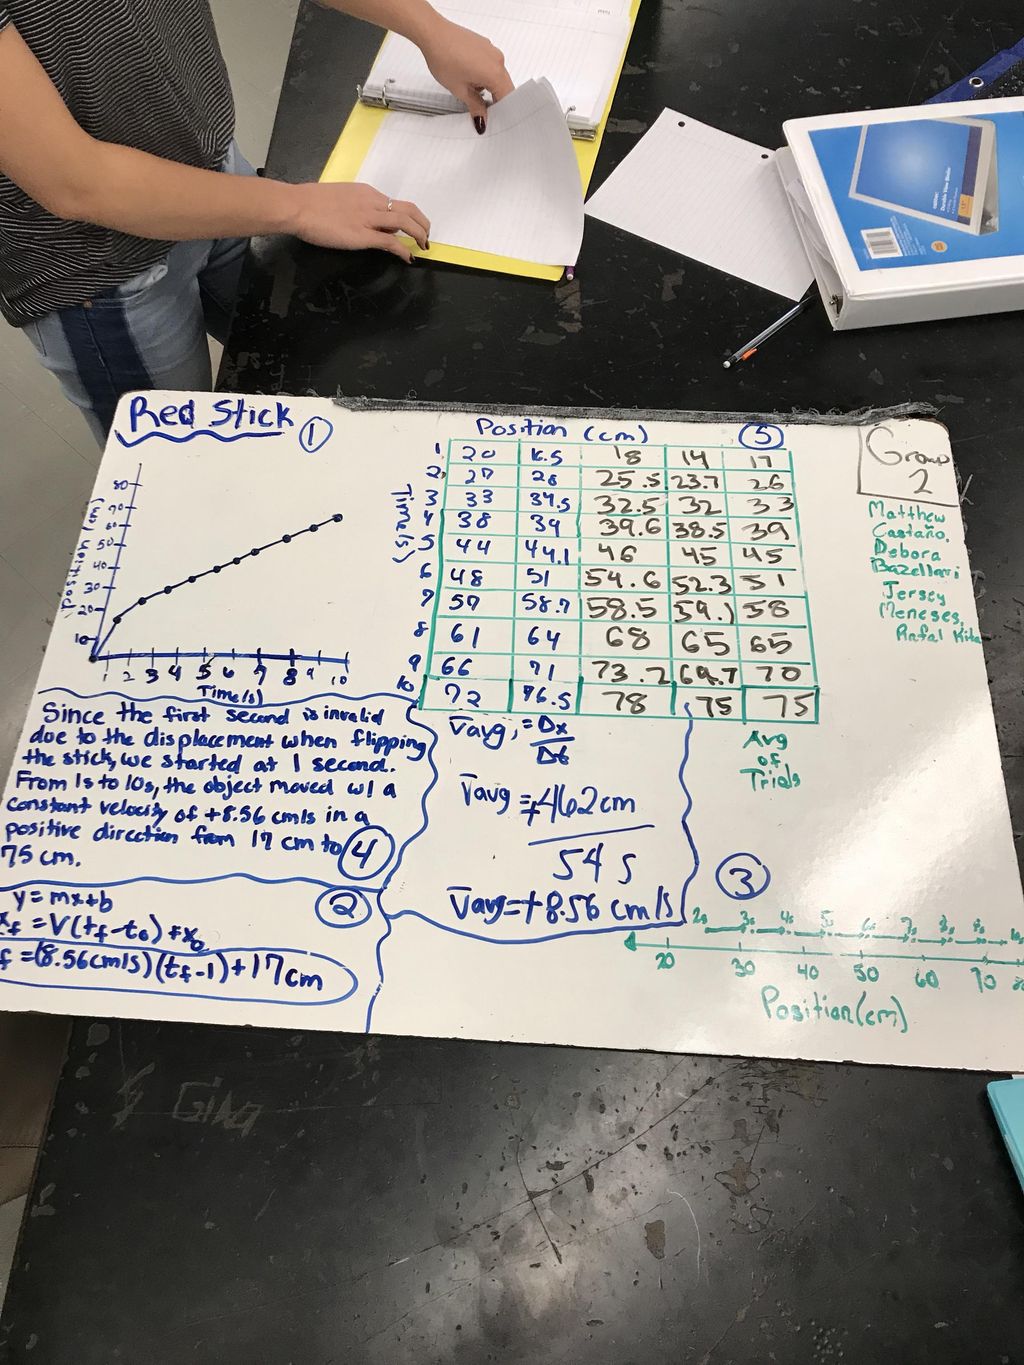 Red Stick
1
Position (cm)
80
70
60
50
40
30
20
10
1 2 3 4 5 6 7 8 9 10
Time(s)
Position (cm)
5
Time(s)
1 20 16.5 18 14 17
2 27 28 25.5 23.7 26
3 33 34.5 32.5 32 33
4 38 39 39.6 38.5 39
5 44 44.1 46 45 45
6 48 51 54.6 52.3 51
7 57 58.7 58.5 59.1 58
8 61 64 68 65 65
9 66 71 73.2 69.7 70
10 72 76.5 78 75 75
Avg
of
Trials
Group
2
Matthew
Castaño,
Debora
Bazellari
Jersey
Meneses,
Rafal
Since the first second is invalid
due to the displacement when flipping
the stick, we started at 1 second.
From 1s to 10s, the object moved w/ a
constant velocity of +8.56 cm/s in a
positive direction from 17 cm to
75 cm.
4
Vavg = Δx
Δt
Vavg = +462 cm
54 s
Vavg = +8.56 cm/s
2
y = mx+b
xf = V(tf-to) + xo
f = (8.56cm/s)(tf-1)+17cm
3
2s 3s 4s 5s 6s 7s 8s 9s 10s
20 30 40 50 60 70
Position(cm)
GINA